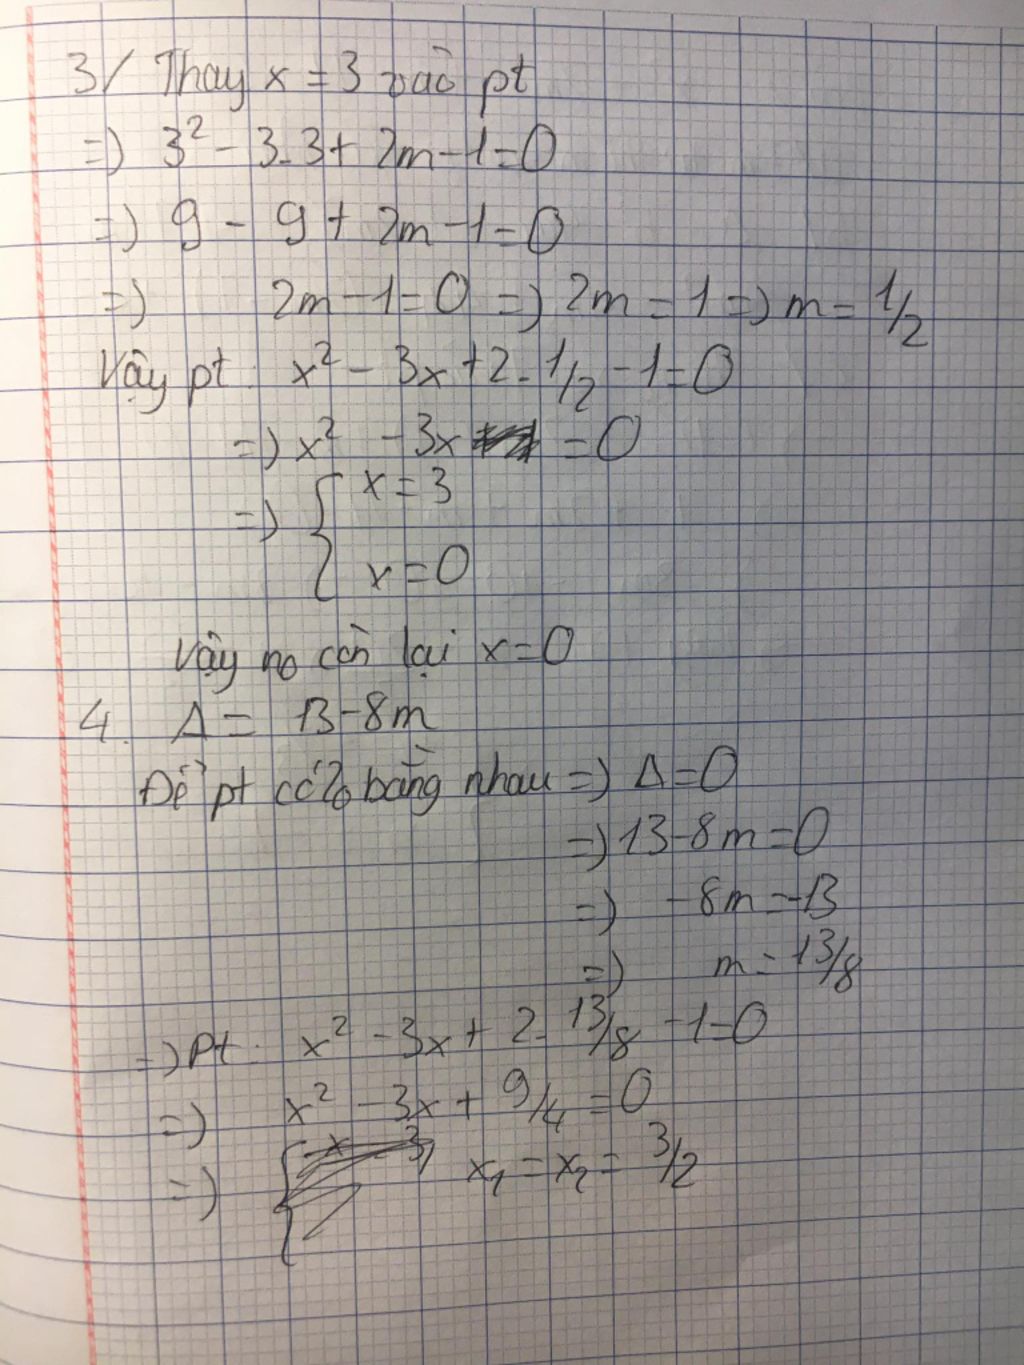 3/ Thay x = 3 vào pt
=) 3² - 3.3 + 2m - 1 = 0
=) 9 - 9 + 2m - 1 = 0
=) 2m - 1 = 0 =) 2m = 1 =) m = 1/2
Vậy pt: x² - 3x + 2. 1/2 - 1 = 0
=) x² - 3x = 0
=) { x = 3
x = 0
Vậy no còn lại x = 0
4. Δ = 13 - 8m
Để pt có bằng nhau =) Δ = 0
=) 13 - 8m = 0
=) -8m = -13
=) m = 13/8
=) Pt: x² - 3x + 2. 13/8 - 1 = 0
=) x² - 3x + 9/4 = 0
=) x₁ = x₂ = 3/2